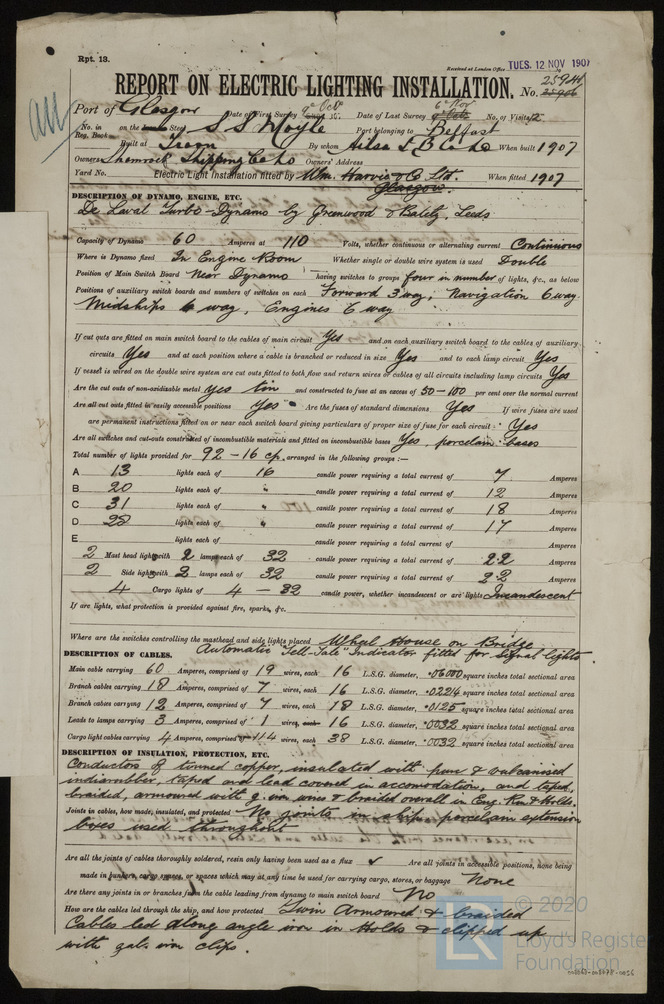 Rpt. 13.
Received at London Office TUES. 12 NOV 1907
25944
REPORT ON ELECTRIC LIGHTING INSTALLATION. No. 25906
Port of Glasgow Date of First Survey 9th Oct Date of Last Survey 6th Nov No. of Visits 12
No. in Reg. Book on the Steel S.S Moyle Port belonging to Belfast
Built at Troon By whom Ailsa S.B. Co. Ld When built 1907
Owners Shamrock Shipping Co Ld Owners' Address
Yard No. Electric Light Installation fitted by Wm. Harvie & Co. Ltd. When fitted 1907
Glasgow.
DESCRIPTION OF DYNAMO, ENGINE, ETC.
De Laval Turbo-Dynamo by Greenwood & Bately, Leeds
Capacity of Dynamo 60 Amperes at 110 Volts, whether continuous or alternating current Continuous
Where is Dynamo fixed In Engine Room Whether single or double wire system is used Double
Position of Main Switch Board Near Dynamo having switches to groups four in number of lights, &c., as below
Positions of auxiliary switch boards and numbers of switches on each Forward 3 way, Navigation 6 way
Midships 4 way, Engines 6 way
If cut outs are fitted on main switch board to the cables of main circuit Yes and on each auxiliary switch board to the cables of auxiliary
circuits Yes and at each position where a cable is branched or reduced in size Yes and to each lamp circuit Yes
If vessel is wired on the double wire system are cut outs fitted to both flow and return wires or cables of all circuits including lamp circuits Yes
Are the cut outs of non-oxidizable metal yes tin and constructed to fuse at an excess of 50-100 per cent over the normal current
Are all cut outs fitted in easily accessible positions Yes Are the fuses of standard dimensions Yes If wire fuses are used
are permanent instructions fitted on or near each switch board giving particulars of proper size of fuse for each circuit: Yes
Are all switches and cut-outs constructed of incombustible materials and fitted on incombustible bases Yes, porcelain bases
Total number of lights provided for 92-16 cp. arranged in the following groups:—
A 13 lights each of 16 candle power requiring a total current of 7 Amperes
B 20 lights each of " candle power requiring a total current of 12 Amperes
C 31 lights each of " candle power requiring a total current of 18 Amperes
D 28 lights each of " candle power requiring a total current of 17 Amperes
E lights each of candle power requiring a total current of Amperes
2 Mast head light with 2 lamps each of 32 candle power requiring a total current of 2.2 Amperes
2 Side light with 2 lamps each of 32 candle power requiring a total current of 2.2 Amperes
4 Cargo lights of 4 - 32 candle power, whether incandescent or arc lights Incandescent
If arc lights, what protection is provided against fire, sparks, &c.
Where are the switches controlling the masthead and side lights placed Wheel House on Bridge
Automatic "Tell-Tale" Indicator fitted for signal lights
DESCRIPTION OF CABLES.
Main cable carrying 60 Amperes, comprised of 19 wires, each 16 L.S.G. diameter, .06000 square inches total sectional area
Branch cables carrying 18 Amperes, comprised of 7 wires, each 16 L.S.G. diameter, .02214 square inches total sectional area
Branch cables carrying 12 Amperes, comprised of 7 wires, each 18 L.S.G. diameter, .0125 square inches total sectional area
Leads to lamps carrying 3 Amperes, comprised of 1 wires, each 16 L.S.G. diameter, .0032 square inches total sectional area
Cargo light cables carrying 4 Amperes, comprised of 114 wires, each 38 L.S.G. diameter, .0032 square inches total sectional area
DESCRIPTION OF INSULATION, PROTECTION, ETC.
Conductors of tinned copper, insulated with pure & vulcanised
indiarubber, taped and lead covered in accomodation, and taped,
braided, armoured with g. iron wires & braided overall in Eng. Rm. & Holds.
Joints in cables, how made, insulated, and protected No joints in ship, porcelain extension
boxes used throughout
Are all the joints of cables thoroughly soldered, resin only having been used as a flux ✓ Are all joints in accessible positions, none being
made in bunkers, cargo spaces, or spaces which may at any time be used for carrying cargo, stores, or baggage None
Are there any joints in or branches from the cable leading from dynamo to main switch board No
How are the cables led through the ship, and how protected Twin Armoured & braided
Cables led along angle iron in Holds & clipped up
with gal. iron clips.
© 2020
LR
Lloyd's Register
Foundation